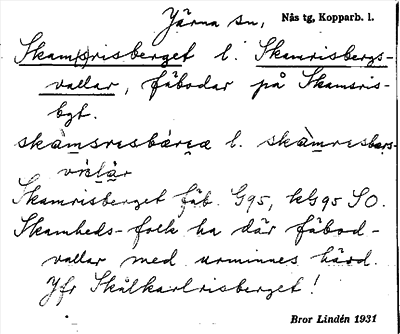 Järna sn, Nås tg, Kopparb. l.
Skam(s)risberget l. Skamrisbergs-
vallar, fäbodar på Skamsris-
bgt.
skàmsrɩsbárɩɛa l. skàmrɩsbærs-
Skamrisberget fäb. G95, kG95 SO.
Skamheds-folk ha där fäbod-
vallar med urminnes hävd.
Jfr Skålkarlrisberget!
Bror Lindén 1931